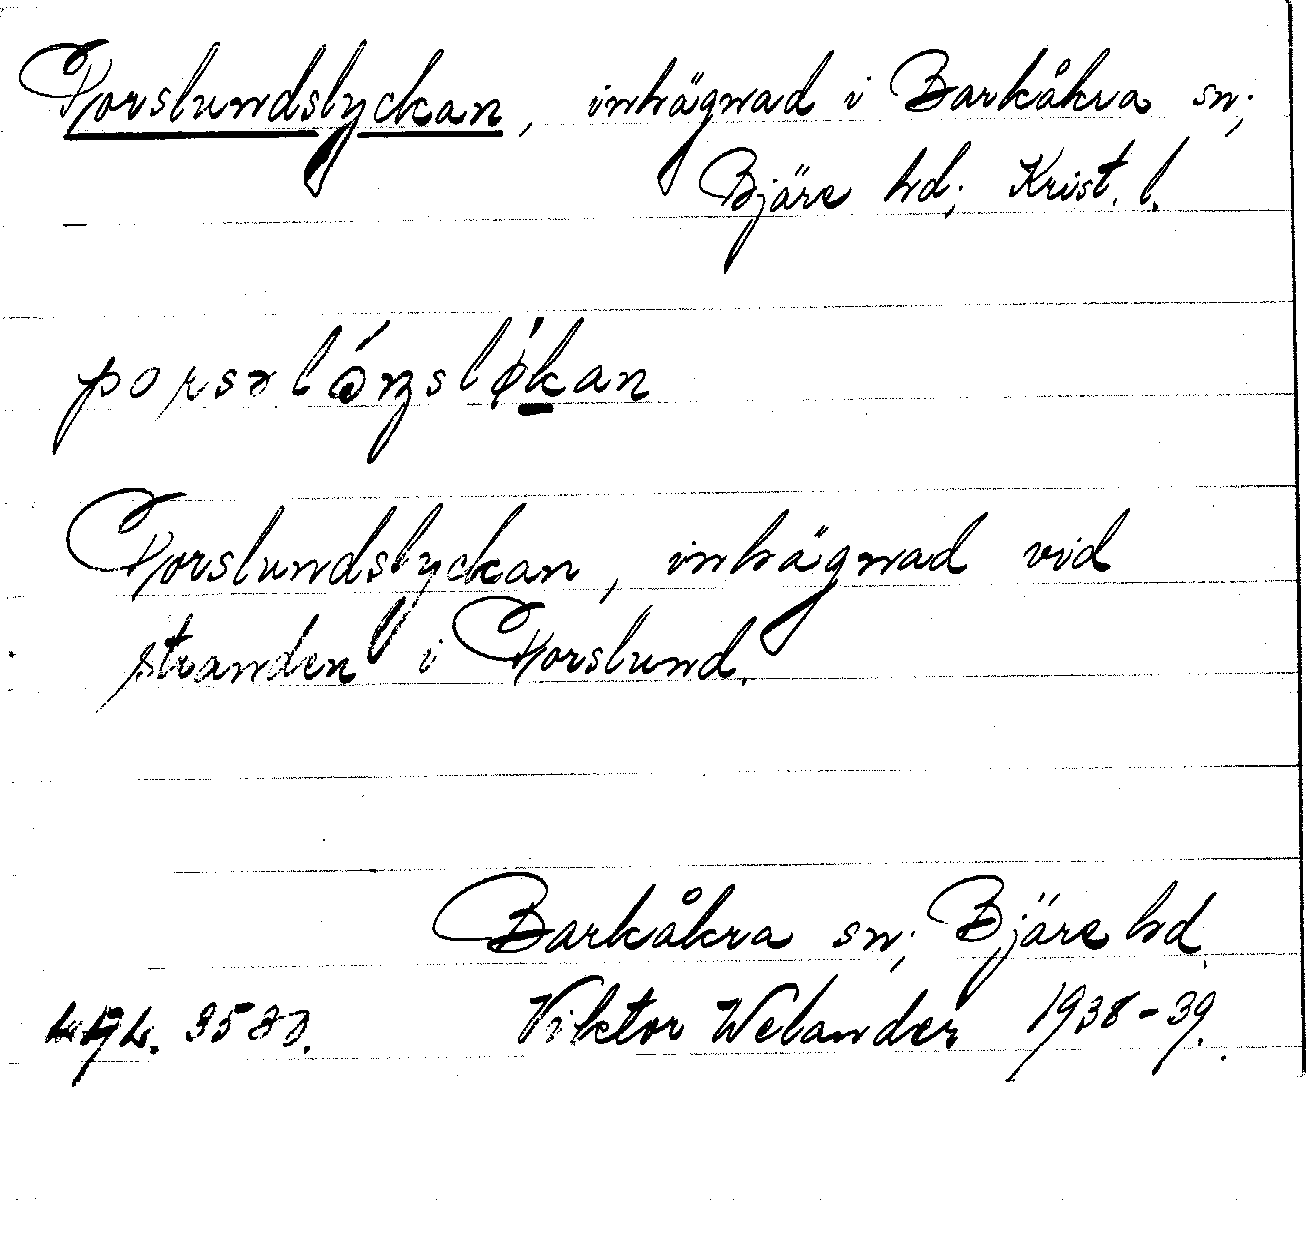 Porslundslyckan, inhägnad i Barkåkra sn;
Bjäre hd; Krist. l.
porsəlónslø̀kan
Porslundslyckan, inhägnad vid
stranden i Porslund.
Barkåkra sn; Bjäre hd
Viktor Welander 1938-39.